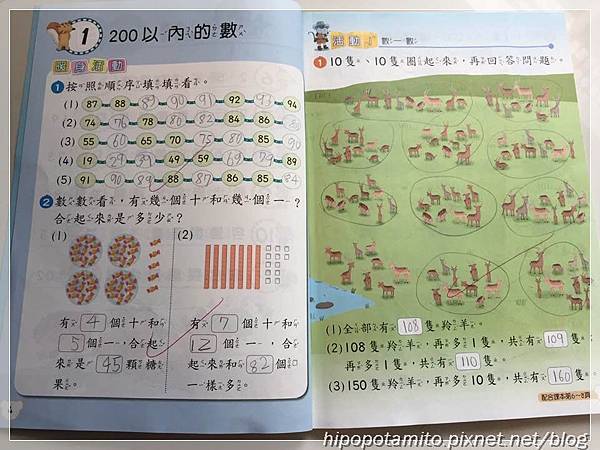 1 200以內的數
暖身活動
1 按照順序填填看。
(1) 87 88 89 90 91 92 93 94
(2) 74 76 78 80 82 84 86
(3) 55 60 65 70 75 80 85 90
(4) 19 29 39 49 59 69 79 89
(5) 91 90 89 88 87 86 85 84
2 數數看，有幾個十和幾個一？
合起來是多少？
(1)
有 4 個十和
5 個一，合起
來是 45 顆糖
果。
(2)
有 7 個十和
12 個一，合
起來和 82 個
一樣多。
活動 1 數一數
1 10隻、10隻圈起來，再回答問題。
(1) 全部有 108 隻羚羊。
(2) 108隻羚羊，再多1隻，共有 109 隻；
再多1隻，共有 110 隻。
(3) 150隻羚羊，再多10隻，共有 160 隻。
配合課本第6~8頁
hipopotamito.pixnet.net/blog